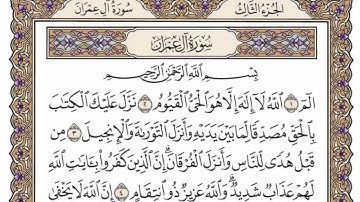 سُورَةُ آلِ عِمْرَانَ
الجُزْءُ الثَّالِثُ
سُورَةُ آلِ عِمْرَانَ
بِسْمِ اللَّهِ الرَّحْمَٰنِ الرَّحِيمِ
الٓمٓ ١ ٱللَّهُ لَآ إِلَٰهَ إِلَّا هُوَ ٱلْحَىُّ ٱلْقَيُّومُ ٢ نَزَّلَ عَلَيْكَ ٱلْكِتَٰبَ
بِٱلْحَقِّ مُصَدِّقًا لِّمَا بَيْنَ يَدَيْهِ وَأَنزَلَ ٱلتَّوْرَىٰةَ وَٱلْإِنجِيلَ ٣ مِن
قَبْلُ هُدًى لِّلنَّاسِ وَأَنزَلَ ٱلْفُرْقَانَ ۗ إِنَّ ٱلَّذِينَ كَفَرُوا۟ بِـَٔايَٰتِ ٱللَّهِ
لَهُمْ عَذَابٌ شَدِيدٌ ۗ وَٱللَّهُ عَزِيزٌ ذُو ٱنتِقَامٍ ٤ إِنَّ ٱللَّهَ لَا يَخْفَىٰ